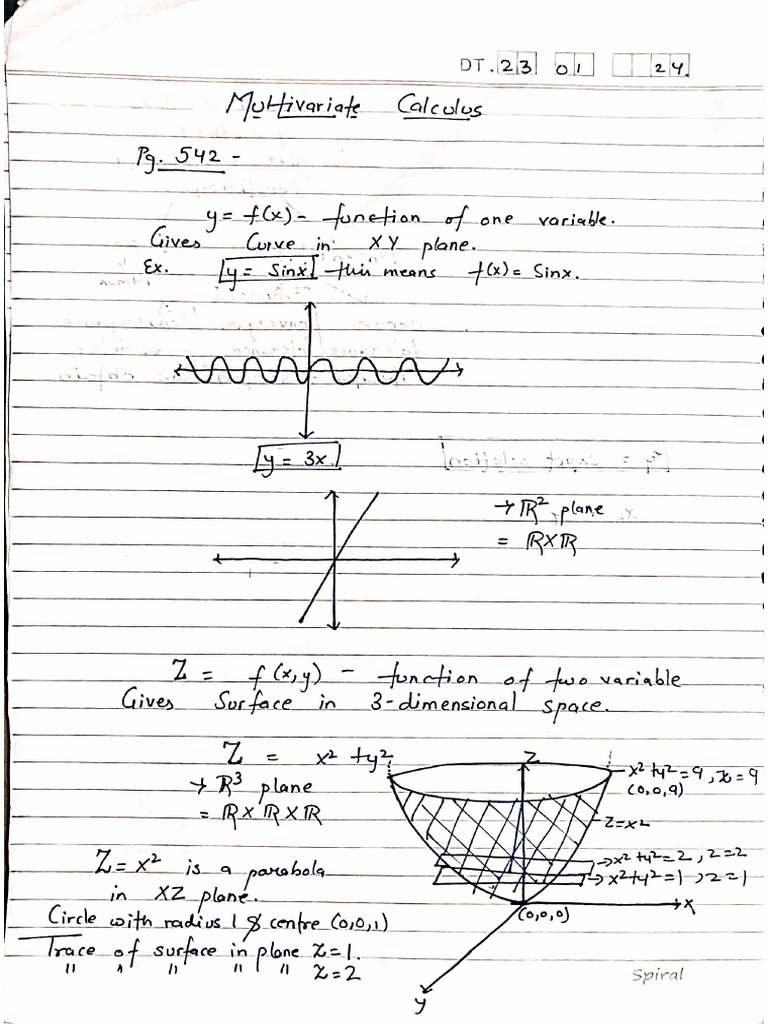 DT. 23 01 24
Multivariate Calculus
Pg. 542 -
y = f(x) - function of one variable.
Gives Curve in XY plane.
Ex. y = Sinx this means f(x) = Sinx.
y = 3x
→ ℝ² plane
= ℝXℝ
Z = f(x,y) - function of two variable
Gives Surface in 3-dimensional space.
Z = x² + y²
→ ℝ³ plane
= ℝ X ℝ X ℝ
Z
x² + y² = 9, z = 9
(0,0,9)
Z = x²
x² + y² = 2, z = 2
→ x² + y² = 1, z = 1
X
(0,0,0)
y
Z = x² is a parabola
in XZ plane.
Circle with radius 1 & centre (0,0,1)
Trace of surface in plane Z = 1.
" " " " " Z = 2
Spiral